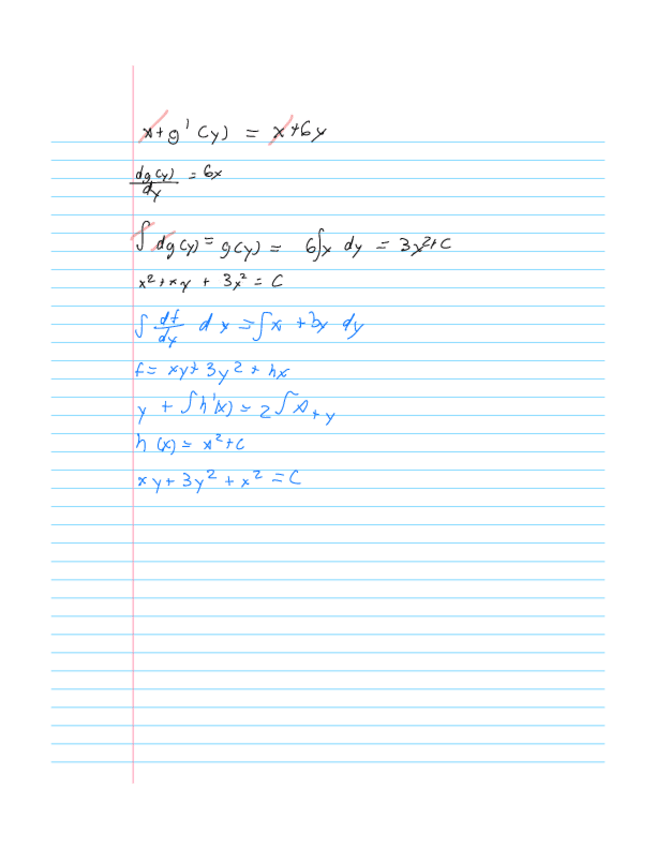 x+g'(y) = x+6y
dg(y)/dy = 6x
∫dg(y) = g(y) = 6∫x dy = 3y²+C
x²+xy + 3y² = C
∫ df/dy dx = ∫x + 3y dy
f = xy + 3y² + hx
y + ∫h'(x) = 2∫x + y
h(x) = x²+C
xy + 3y² + x² = C